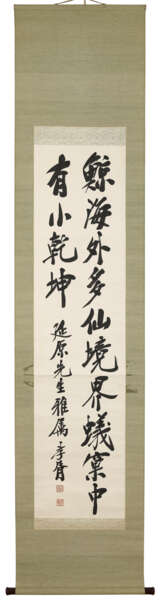 鯨海外多仙境界蟻窠中
有小乾坤
延原先生雅属 孝胥